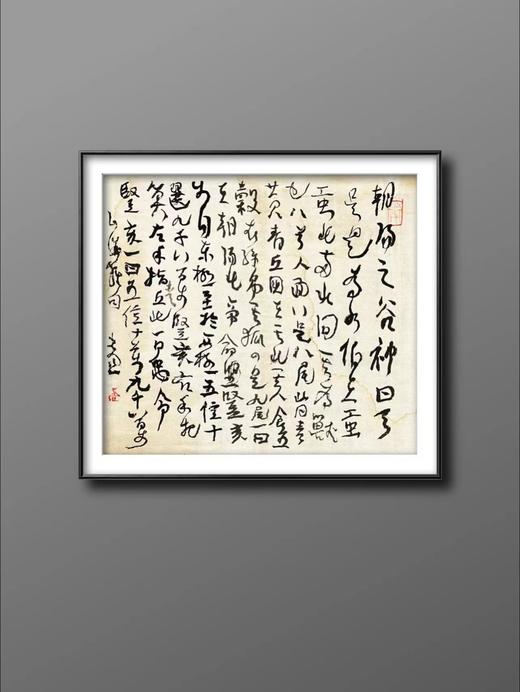 朝陽之谷神曰天
吳是為水伯在𧈫
𧈫北兩水間其為獸
也八首人面八足八尾皆青
黃青丘國在其北其人食五
穀衣絲帛其狐四足九尾一曰
在朝陽北帝命豎亥步
自東極至於西極五億十
選九千八百步豎亥右手把
算左手指青丘北一曰禹令
豎亥一曰五億十萬九千八百步
山海經句